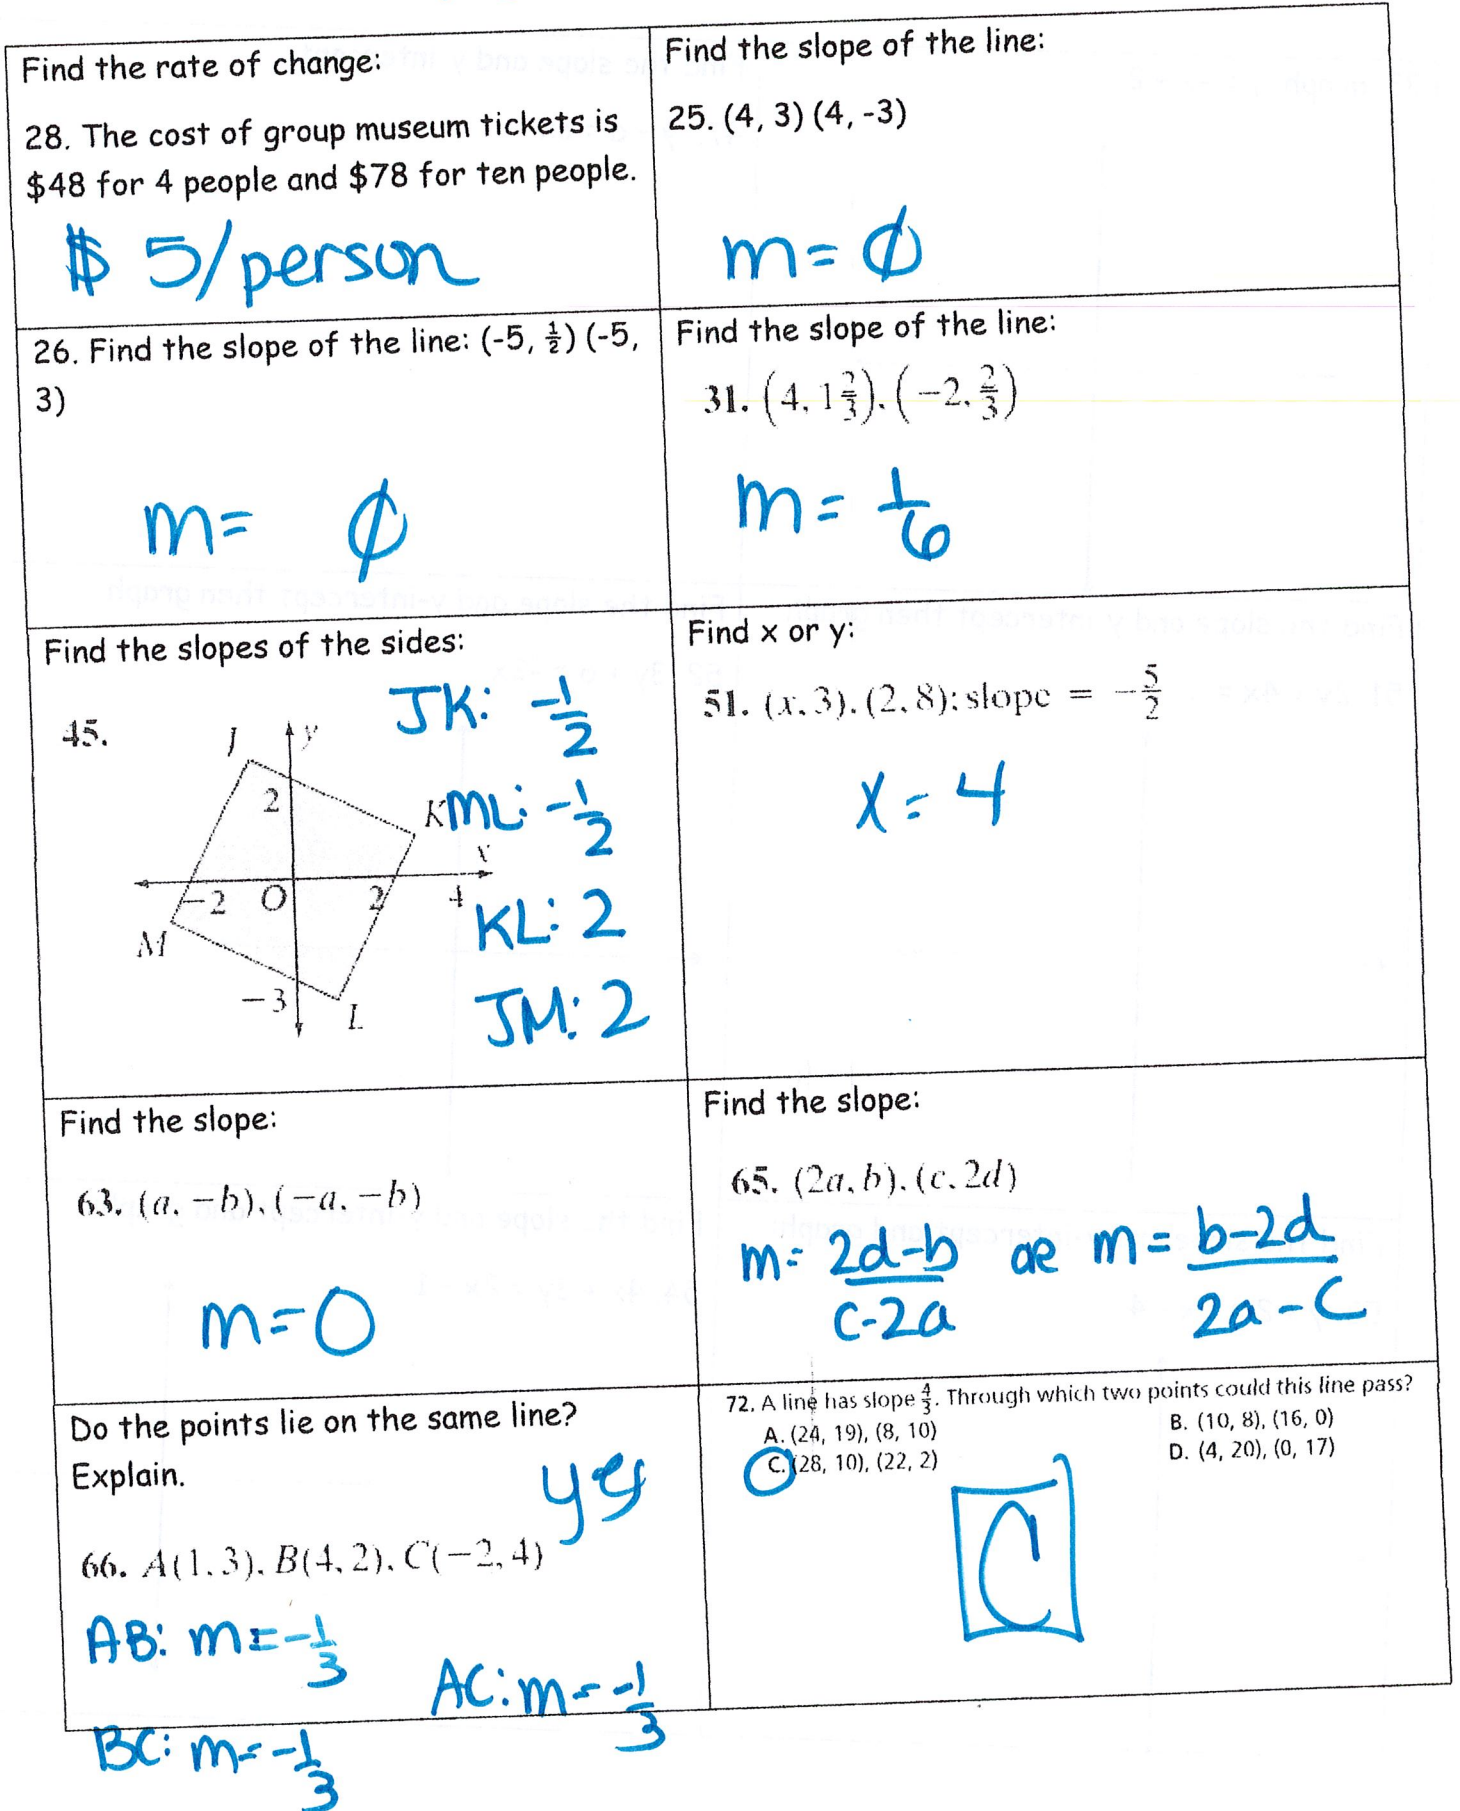 Find the rate of change:
28. The cost of group museum tickets is
$48 for 4 people and $78 for ten people.
$ 5/person
Find the slope of the line:
25. (4, 3) (4, -3)
m = ∅
26. Find the slope of the line: (-5, ½) (-5,
3)
m = ∅
Find the slope of the line:
31. (4, 1 2/3), (-2, 2/3)
m = 1/6
Find the slopes of the sides:
45.
J
y
2
K
x
-2 O 2 4
M
-3
L
JK: -1/2
ML: -1/2
KL: 2
JM: 2
Find x or y:
51. (x, 3), (2, 8); slope = -5/2
x = 4
Find the slope:
63. (a, -b), (-a, -b)
m = 0
Find the slope:
65. (2a, b), (c, 2d)
m = 2d-b/c-2a or m = b-2d/2a-c
Do the points lie on the same line?
Explain.
yes
66. A(1, 3), B(4, 2), C(-2, 4)
AB: m = -1/3
AC: m = -1/3
BC: m = -1/3
72. A line has slope 4/3. Through which two points could this line pass?
A. (24, 19), (8, 10)
B. (10, 8), (16, 0)
C. (28, 10), (22, 2)
D. (4, 20), (0, 17)
C